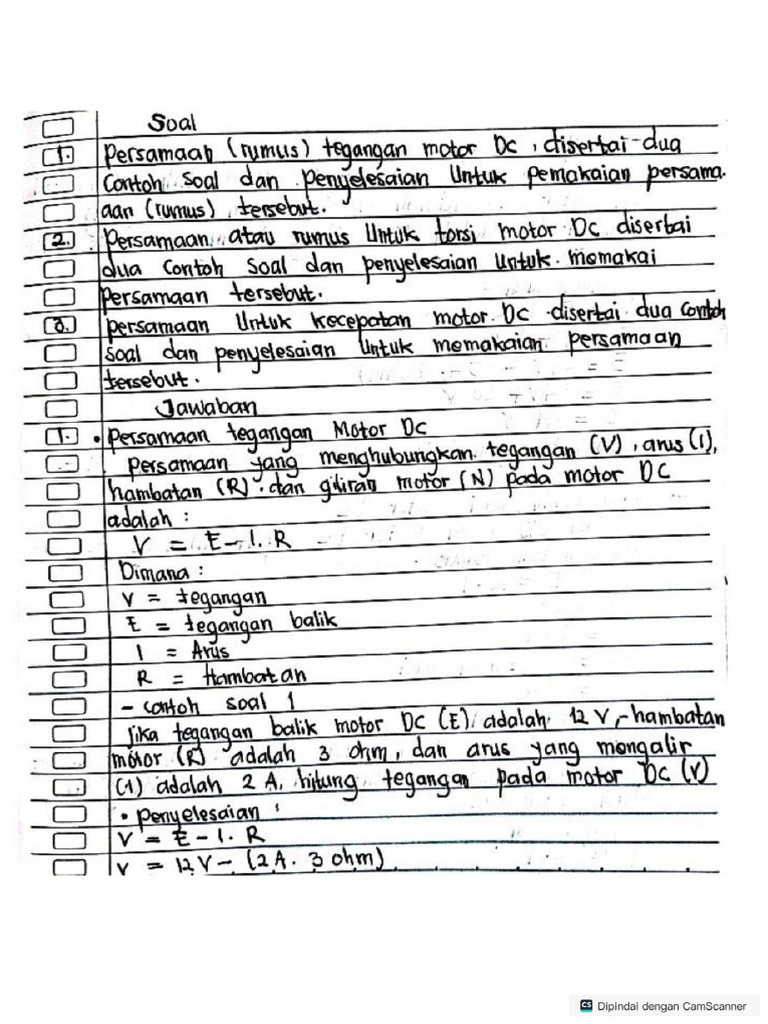 Soal
1. Persamaan (rumus) tegangan motor Dc, disertai dua
Contoh soal dan Penyelesaian Untuk pemakaian persama-
aan (rumus) tersebut.
2. Persamaan atau rumus Untuk torsi motor Dc disertai
dua Contoh Soal dan penyelesaian Untuk memakai
Persamaan tersebut.
3. Persamaan Untuk kecepatan motor Dc disertai dua Contoh
soal dan penyelesaian Untuk memakaian persamaan
tersebut.
Jawaban
1. • Persamaan tegangan Motor Dc
persamaan yang menghubungkan tegangan (V), arus (I),
hambatan (R) dan giliran motor (N) pada motor DC
adalah :
V = E - I. R
Dimana :
V = tegangan
E = tegangan balik
I = Arus
R = Hambatan
- contoh soal 1
Jika tegangan balik motor Dc (E) adalah 12 V, hambatan
motor (R) adalah 3 ohm, dan arus yang mengalir
(I) adalah 2 A, hitung tegangan pada motor Dc (V)
• penyelesaian :
V = E - I. R
V = 12 V - (2 A. 3 ohm)
CS Dipindai dengan CamScanner